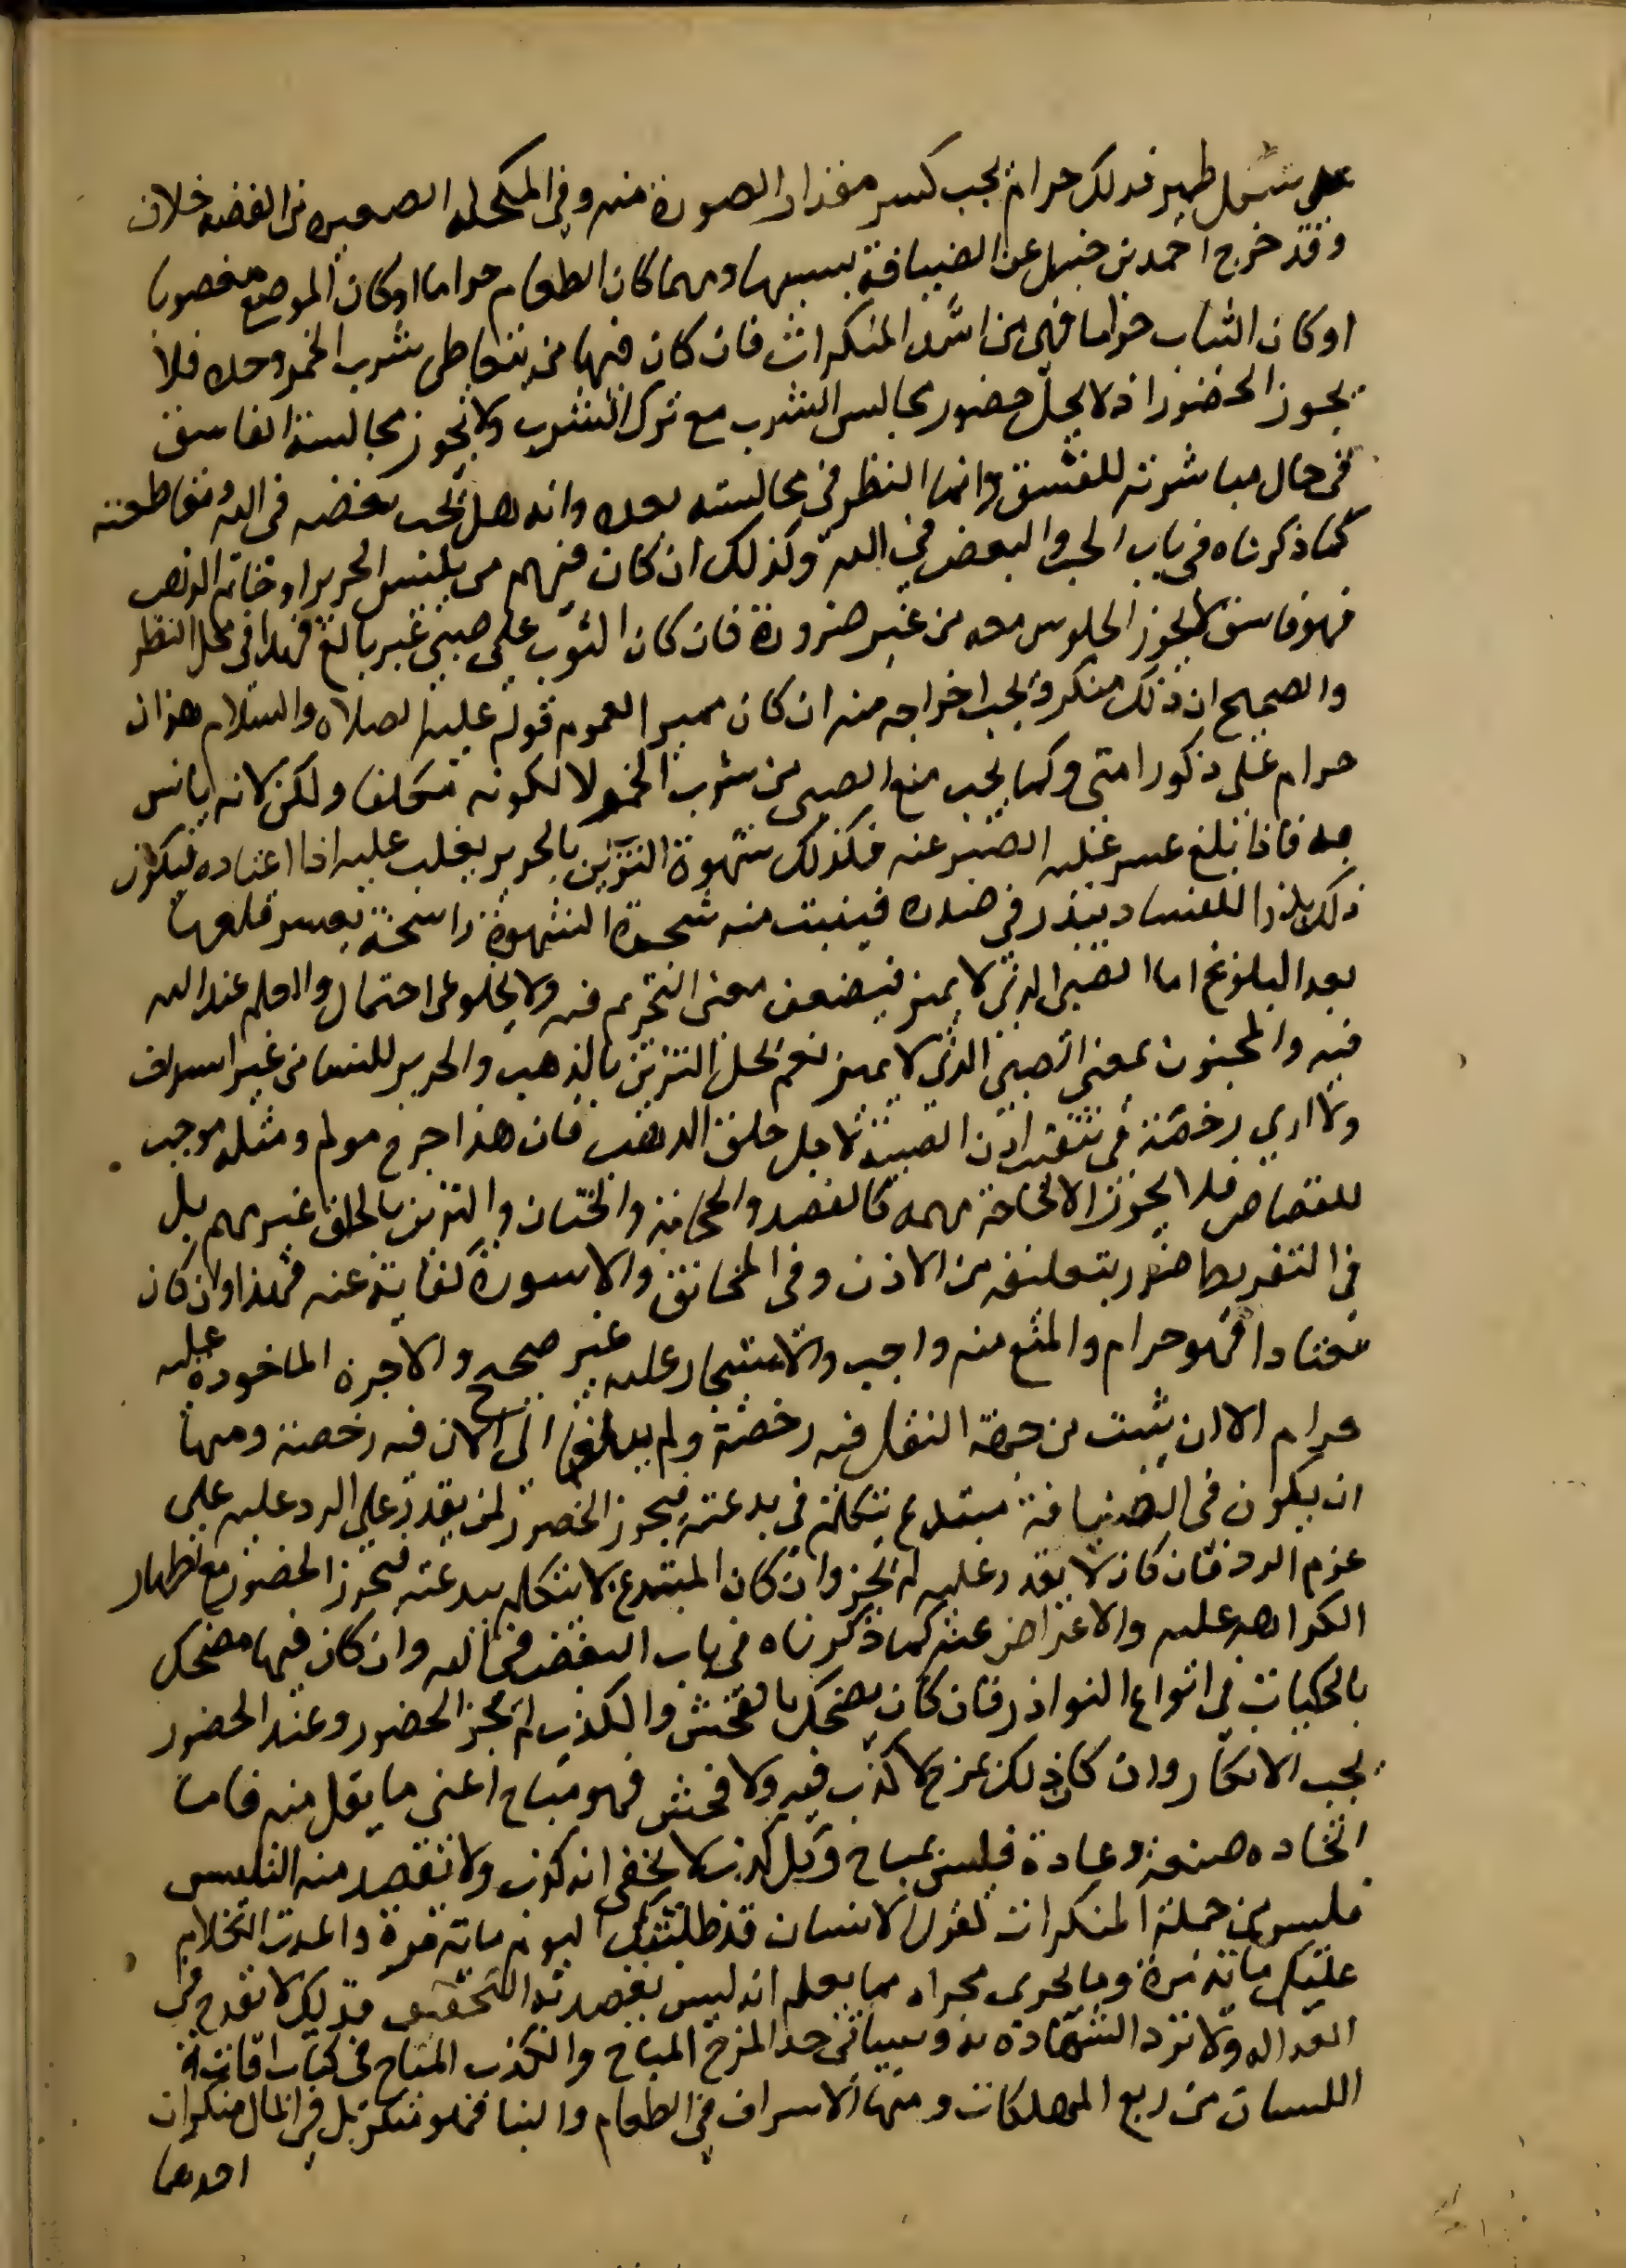 على شكل طير فذلك حرام يجب كسر مقدار الصورة منه وفي المكحلة الصغيرة من الفضة خلاف
وقد خرج احمد بن حنبل عن الضيافة بسببها ومهما كان الطعام حراما او كان الموضع مغصوبا
او كان الثياب حراما فهي من اشد المنكرات فان كان فيها من يتعاطى شرب الخمر وحده فلا
يجوز الحضور اذ لا يحل حضور مجالس الشرب مع ترك الشرب ولا تجوز مجالسة الفاسق
في حال مباشرته للفسق وانما النظر في مجالسته بعده وانه هل يجب بغضه في الله ومقاطعته
كما ذكرناه في باب الحب والبغض في الله وكذلك ان كان فيهم من يلبس الحرير او خاتم الذهب
فهو فاسق لا يجوز الجلوس معه من غير ضرورة فان كان الثوب على صبي غير بالغ فهذا في محل النظر
والصحيح ان ذلك منكر ويجب اخراجه منه ان كان مميزا لعموم قوله عليه الصلاة والسلام هذان
حرام على ذكور امتي وكما يجب منع الصبي من شرب الخمر لا لكونه مكلفا ولكن لانه يانس
به فاذا بلغ عسر عليه الصبر عنه فكذلك شهوة التزين بالحرير يغلب عليه اذا اعتاده فيكون
ذلك بذرا للفساد يبذر في صدره فينبت منه شجرة الشهوة راسخة يعسر قلعها
بعد البلوغ اما الصبي الذي لا يميز فيضعف معنى التحريم فيه ولا يخلو عن احتمال والعلم عند الله
فيه والمجنون بمعنى الصبي الذي لا يميز نعم يحل التزين بالذهب والحرير للنسا من غير اسراف
ولا اري رخصة في تثقيب اذن الصبية لاجل حلق الذهب فان هذا جرح مولم ومثله موجب
للقصاص فلا يجوز الا لحاجة مهمة كالفصد والحجامة والختان والتزين بالحلق غير مهم بل
في التقريط ضرر بتعليقه من الاذن وفي المخانق والاسورة كفاية عنه فهذا وان كان
معتادا فهو حرام والمنع منه واجب والاستيجار عليه غير صحيح والاجرة الماخوذة عليه
حرام الا ان يثبت من جهة النقل فيه رخصة ولم يبلغنا الى الان فيه رخصة ومنها
ان يكون في الضيافة مبتدع يتكلم في بدعته فيجوز الحضور لمن يقدر على الرد عليه على
عزم الرد فان كان لا يقدر عليه لم يجز وان كان المبتدع لا يتكلم ببدعته فيجوز الحضور مع اظهار
الكراهة عليه والاعراض عنه كما ذكرناه في باب البغض في الله وان كان فيها مضحك
بالحكايات في انواع النوادر فان كان يضحك بالفحش والكذب لم يجز الحضور وعند الحضور
يجب الانكار وان كان ذلك بمزح لا كذب فيه ولا فحش فهو مباح اعني ما يقل منه فاما
اتخاذه صنعة وعادة فليس بمباح وكل كذب لا يخفى انه كذب ولا تقصد منه التلبيس
فليس من جملة المنكرات كقول الانسان قد طلبتك اليوم ماية مرة واعدت الكلام
عليك ماية مرة وما يجري مجراه مما يعلم انه ليس يقصد به التحقيق فذلك لا يقدح في
العدالة ولا ترد الشهادة به وسياتي حد المزح المباح والكذب المباح في كتاب افات
اللسان من ربع المهلكات ومنها الاسراف في الطعام والبنا فهو منكر بل في المال منكران
احدهما